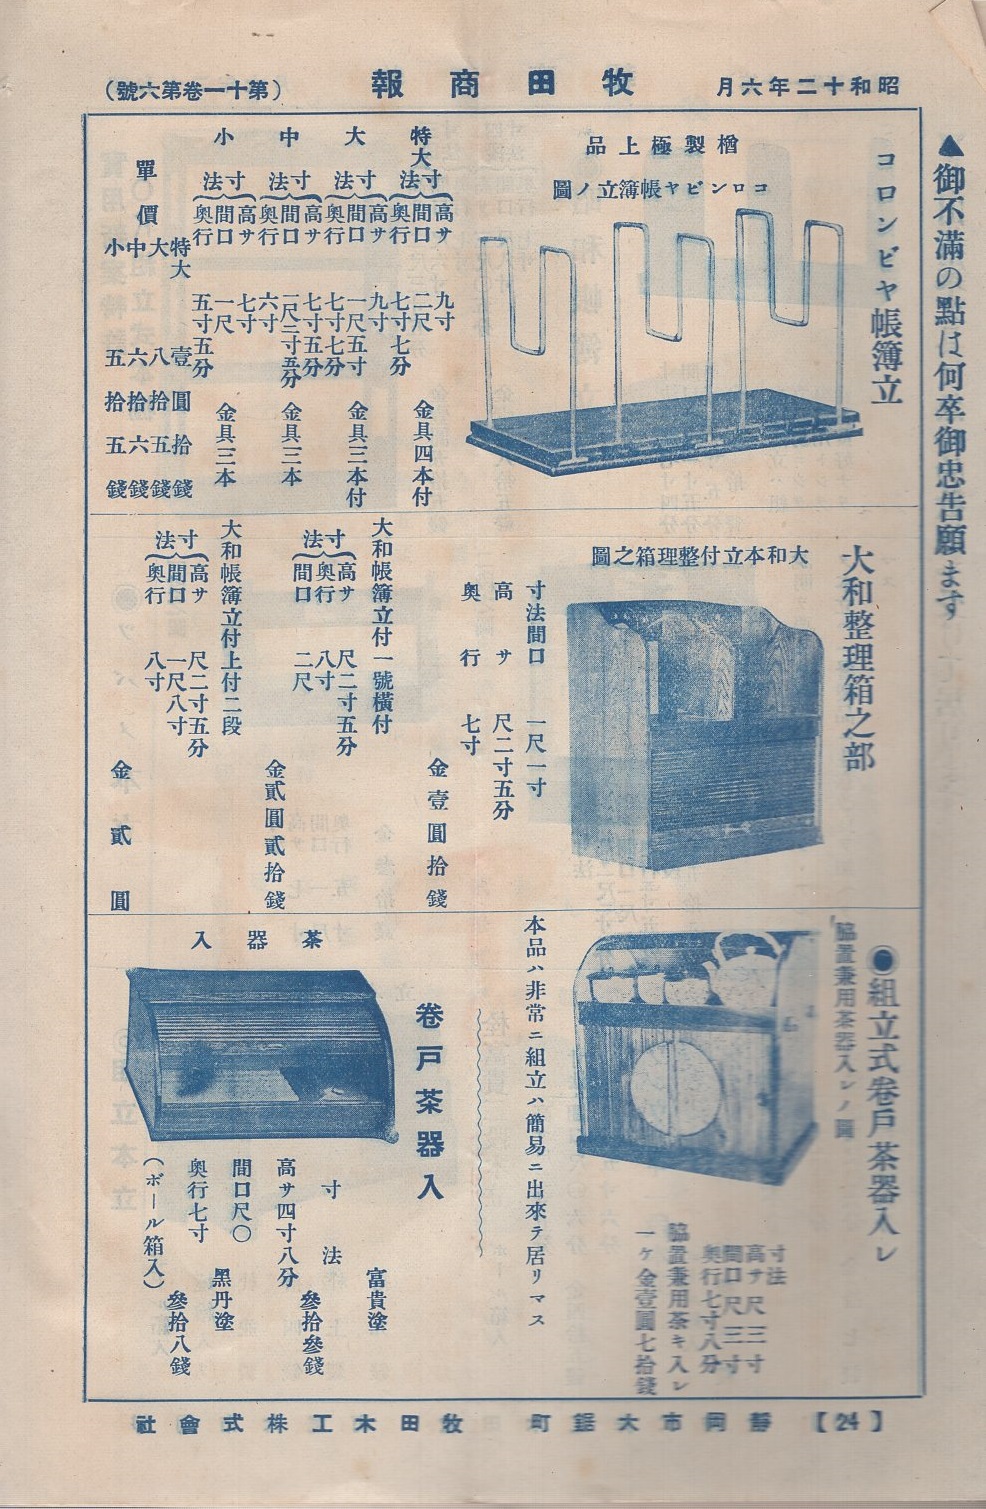 昭和十二年六月
牧田商報
(第十一卷第六號)
▲御不滿の點は何卒御忠告願ます
コロンビヤ帳簿立
檜製極上品
コロンビヤ帳簿立ノ圖
特大
寸法
高サ 九寸
間口 二尺
奥行 七寸七分
金具四本付
大
寸法
高サ 九寸
間口 一尺五寸
奥行 七寸七分
金具三本付
中
寸法
高サ 七寸五分
間口 一尺二寸五分
奥行 六寸
金具三本
小
寸法
高サ 七寸
間口 一尺
奥行 五寸五分
金具三本
單價
特大 壹圓拾錢
大 八拾五錢
中 六拾六錢
小 五拾五錢
大和整理箱之部
大和本立付整理箱之圖
寸法間口 一尺一寸
高サ 尺二寸五分
奥行 七寸
金壹圓拾錢
大和帳簿立付一號横付
寸法
高サ 尺二寸五分
奥行 八寸
間口 二尺
金貳圓貳拾錢
大和帳簿立付上付二段
寸法
高サ 尺二寸五分
間口 一尺八寸
奥行 八寸
金貳圓
◉組立式卷戸茶器入レ
脇置兼用茶器入レノ圖
寸法
高サ 尺三寸
間口 尺三寸
奥行七寸八分
脇置兼用茶キ入レ
一ケ金壹圓七拾錢
本品ハ非常ニ組立ハ簡易ニ出來テ居リマス
卷戸茶器入
茶器入
富貴塗
寸法
參拾參錢
高サ四寸八分
間口尺〇
黑丹塗
奥行七寸
參拾八錢
(ボール箱入)
【24】
靜岡市大鋸町 牧田木工株式會社